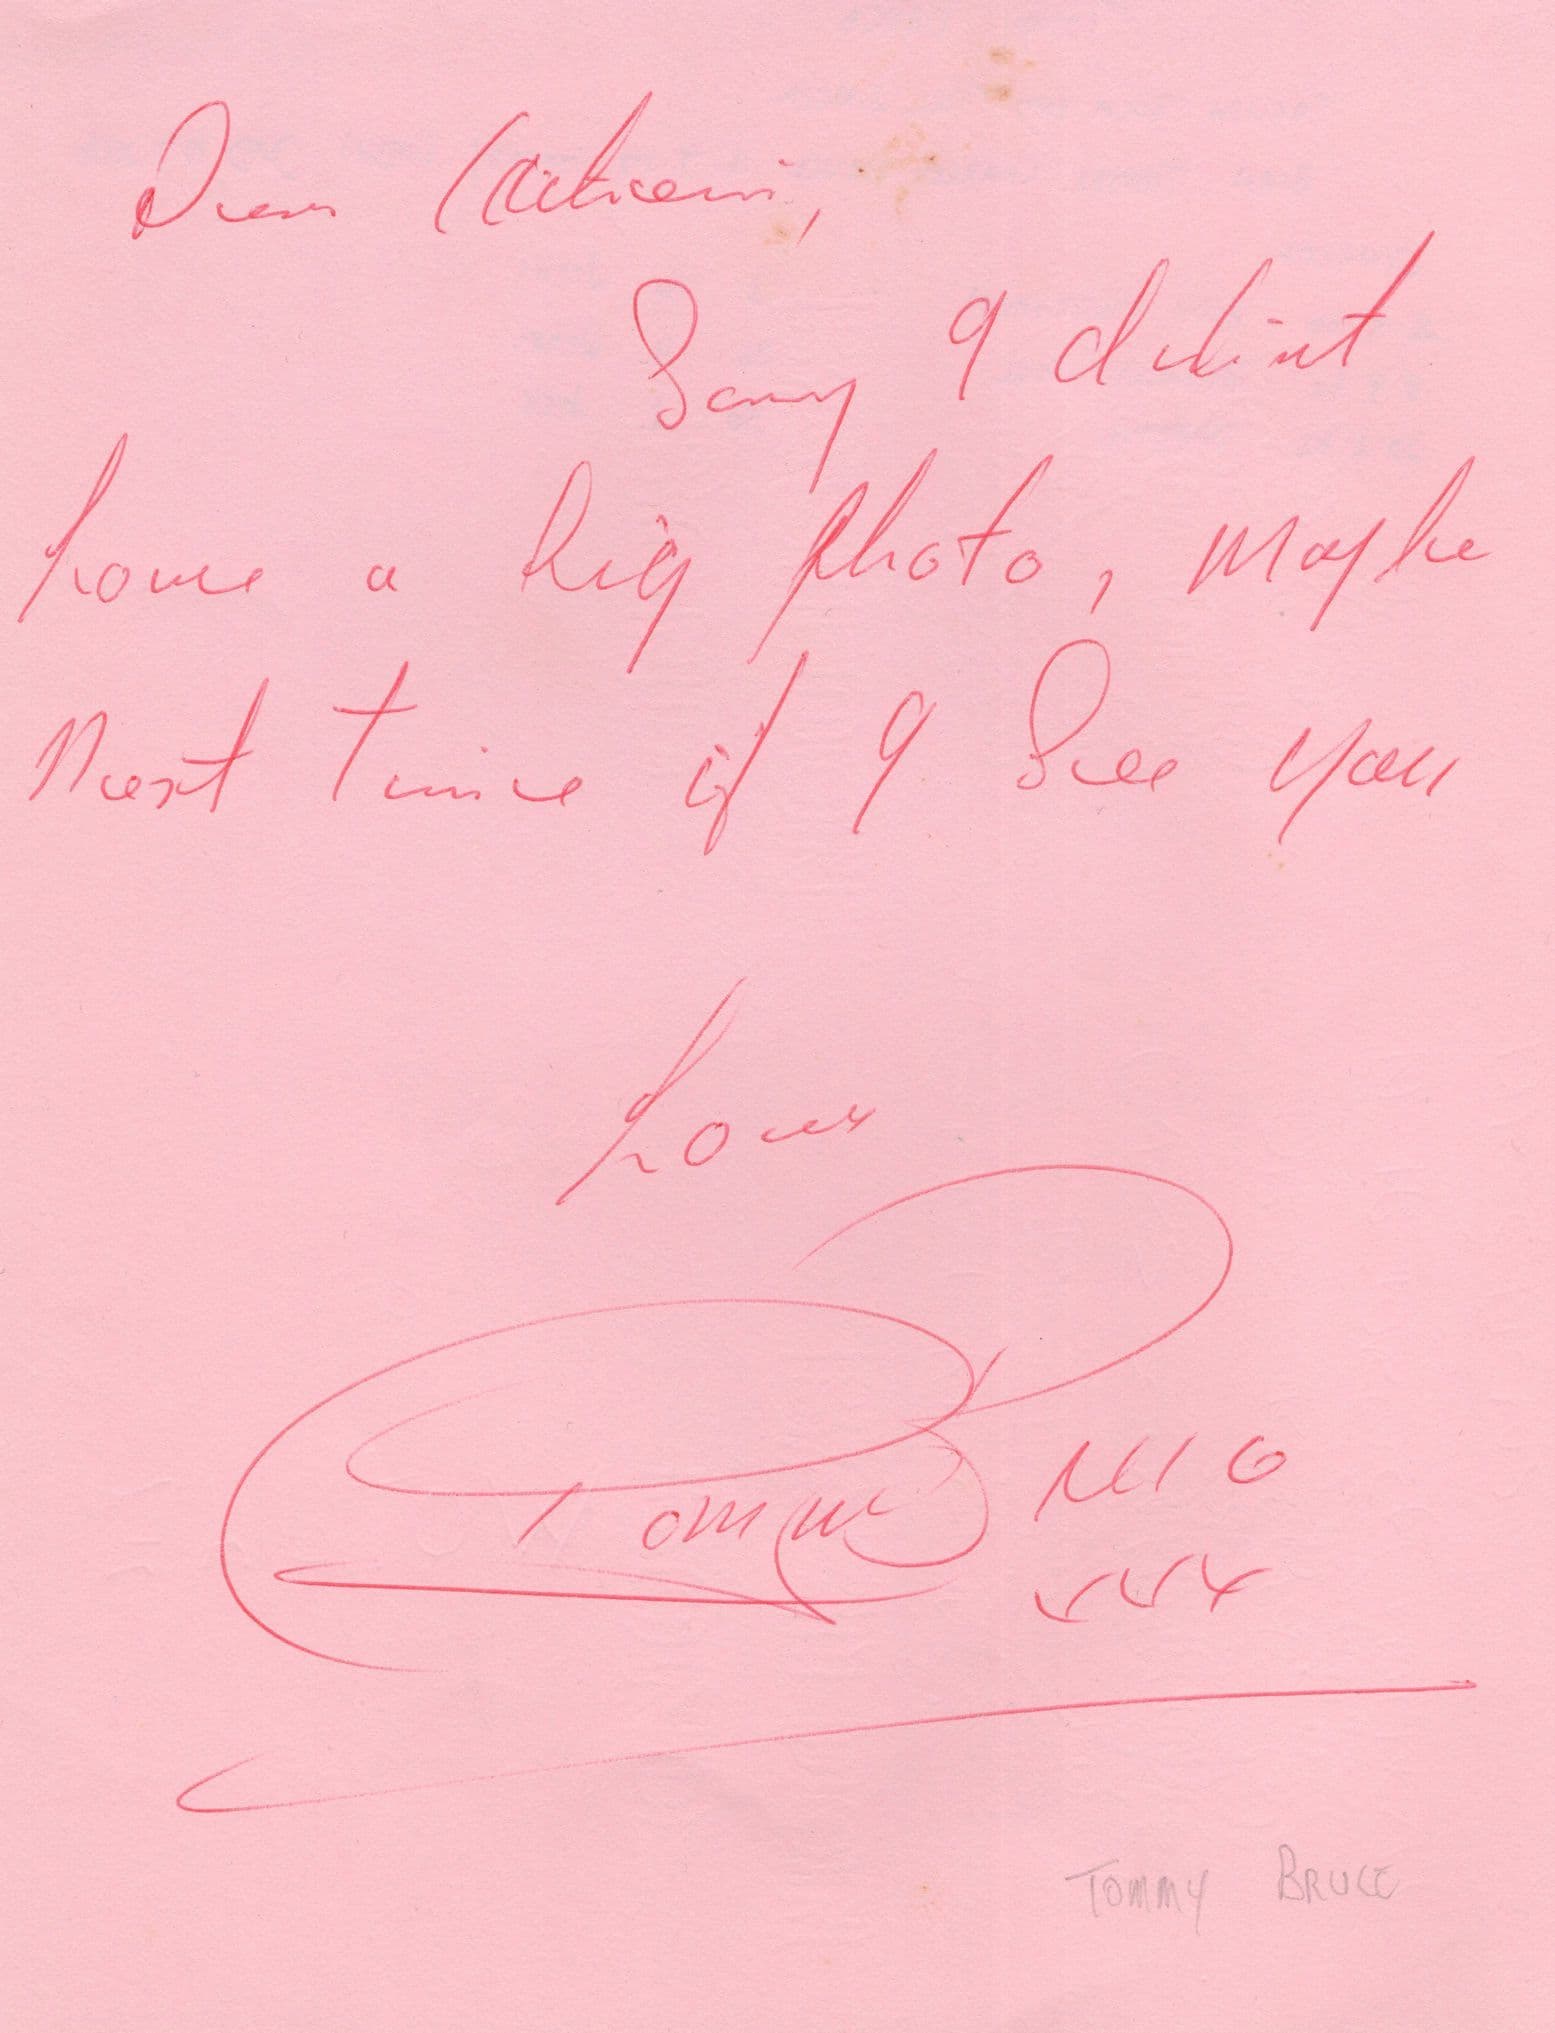 Dear
Sorry I didint
have a big photo, maybe
Next time if I See you
Love
Tommy Bruce
xxx
TOMMY BRUCE